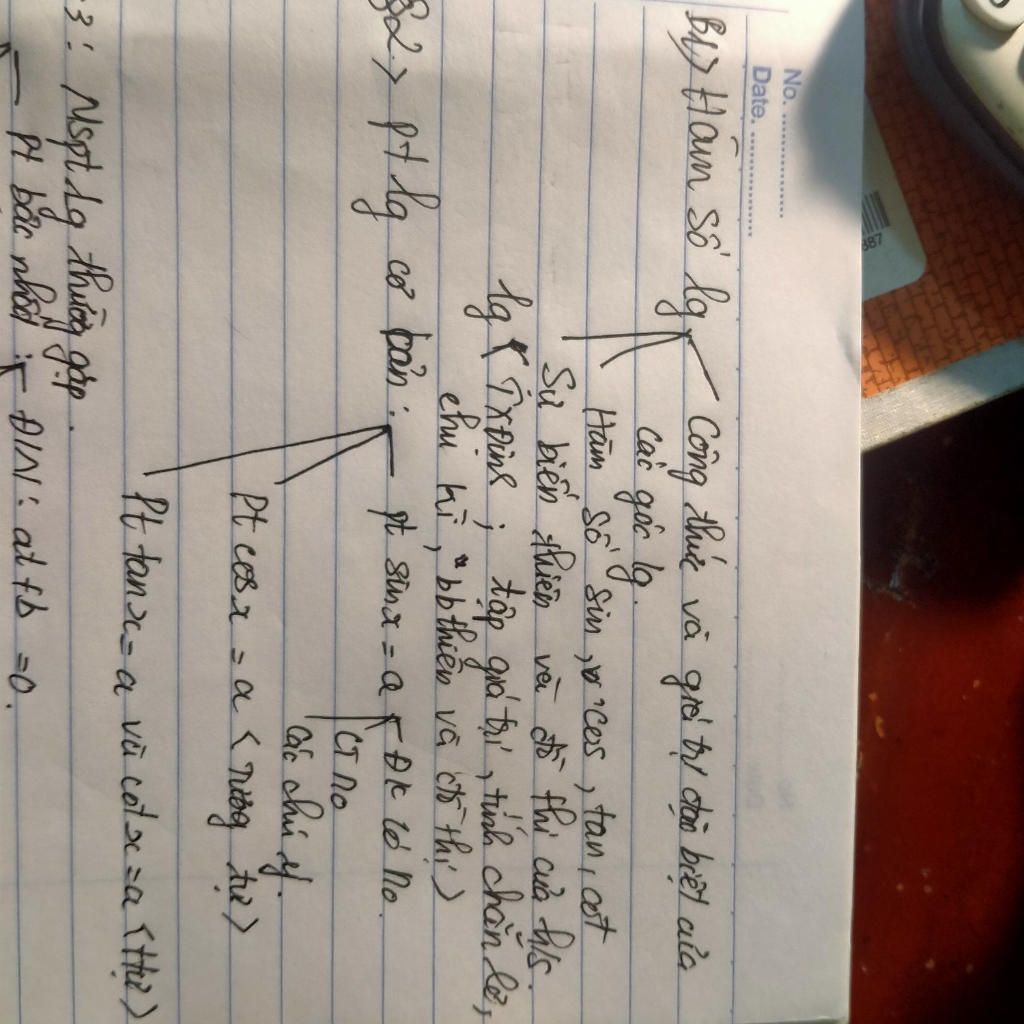 No. ..............
Date. ..............
B1> Hàm số lg
Công thức và giá trị đặc biệt của
các góc lg.
Hàm số sin, cos, tan, cot
Sự biến thiên và đồ thị của h/s
lg < Txđịnh ; tập giá trị, tính chẵn lẻ,
chu kì, bbthiên và đồ thị >
2.> pt lg cơ bản :
pt sinx = a
ĐK có no.
CT no
Các chú ý.
Pt cosx = a < Tương tự >
Pt tanx = a và cotx = a < Ttự >
3 : Mspt lg thường gặp.
Pt bậc nhất :
Đ/N : at + b = 0.
887